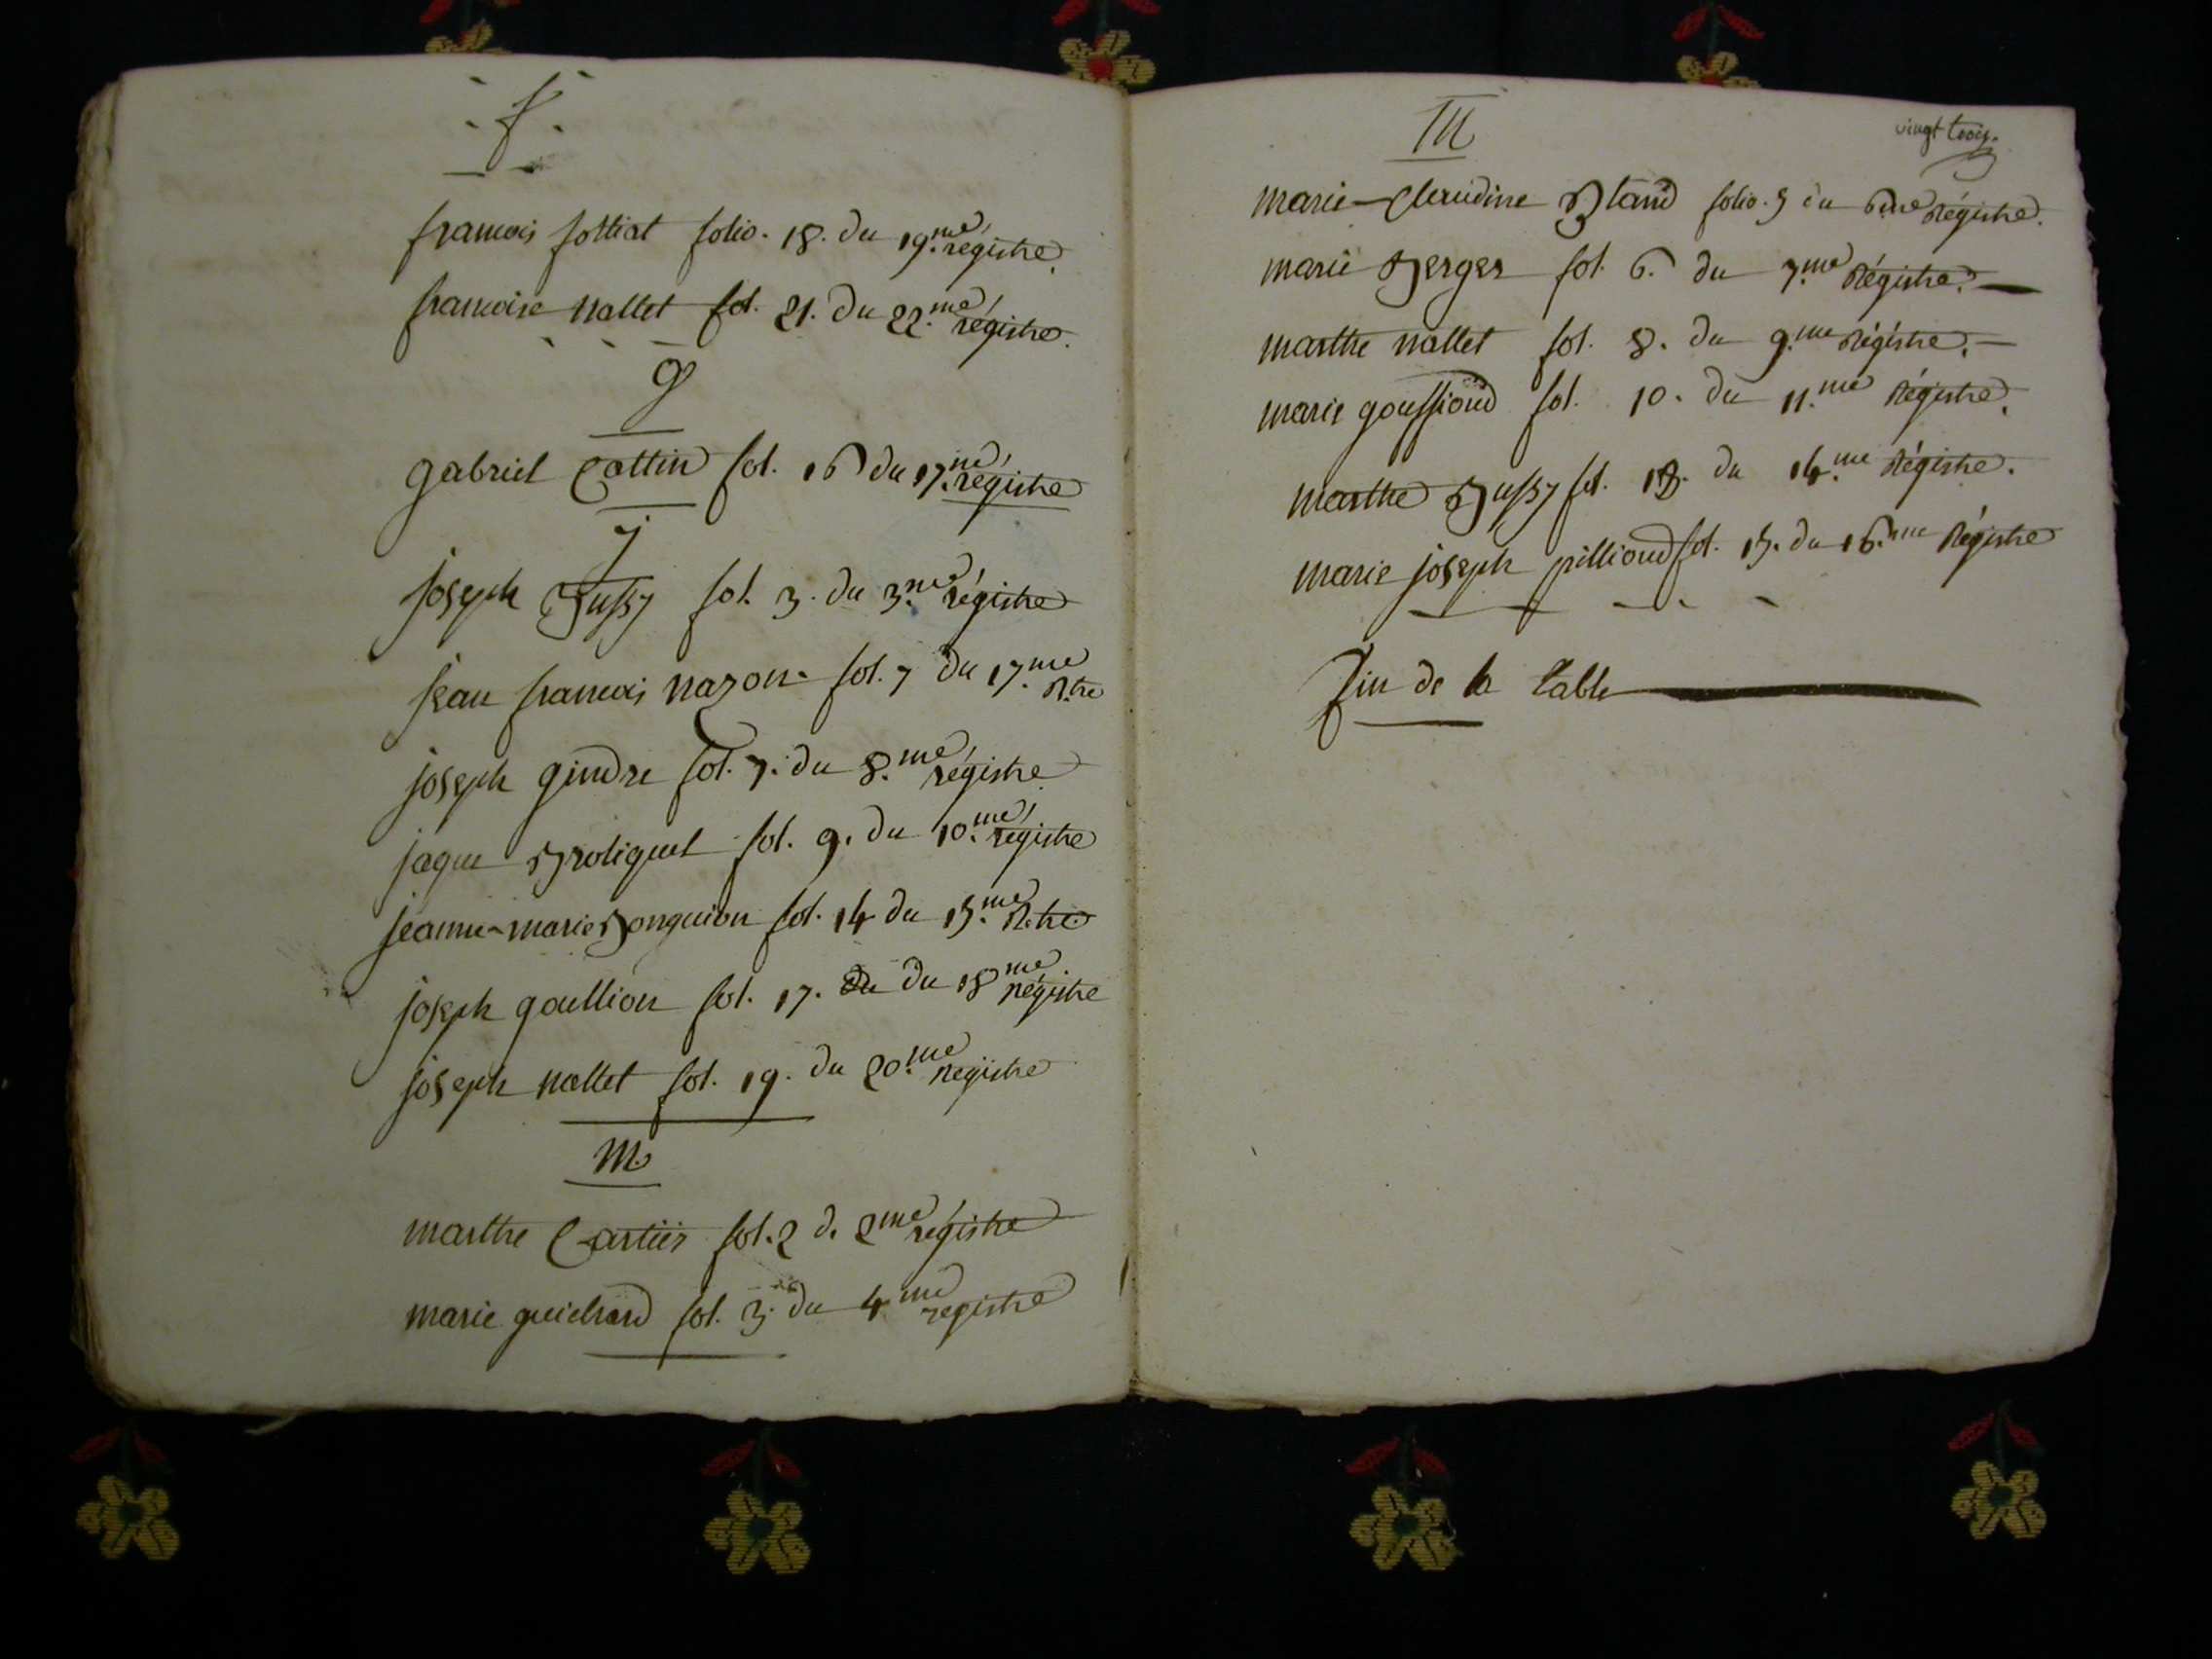 f.
francois folliat folio. 18. du 19.me régistre.
francoise nallet fol. 21. du 22.me régistre.
g
gabriel Cottin fol. 16 du 17.me régistre
j
joseph Bussy fol. 3. du 3.me régistre
jean francois nazon. fol. 7 du 17.me R.tre
joseph gindre fol. 7. du 8.me régistre
jaque Broliquet fol. 9. du 10.me régistre
jeanne-marie Bonguion fol. 14 du 15.me R.tre
joseph goullion fol. 17. du du 18me régistre
joseph nallet fol. 19. du 20.me Registre
m.
marthe Cartier fol. 2 d. 2me régistre
marie guichard fol. 3. du 4.me registre
vingt trois.
M
marie-Claudine Bland folio. 5 du 6me Régistre.
marie Berger fol. 6. du 7.me Régistre.
marthe nallet fol. 8. du 9.me Régistre.
marie goussioud fol. 10. du 11.me Régistre.
marthe Bussy fol. du 14.me Régistre.
marie joseph pillioud fol. 15. du 16.me Régistre
fin de la table